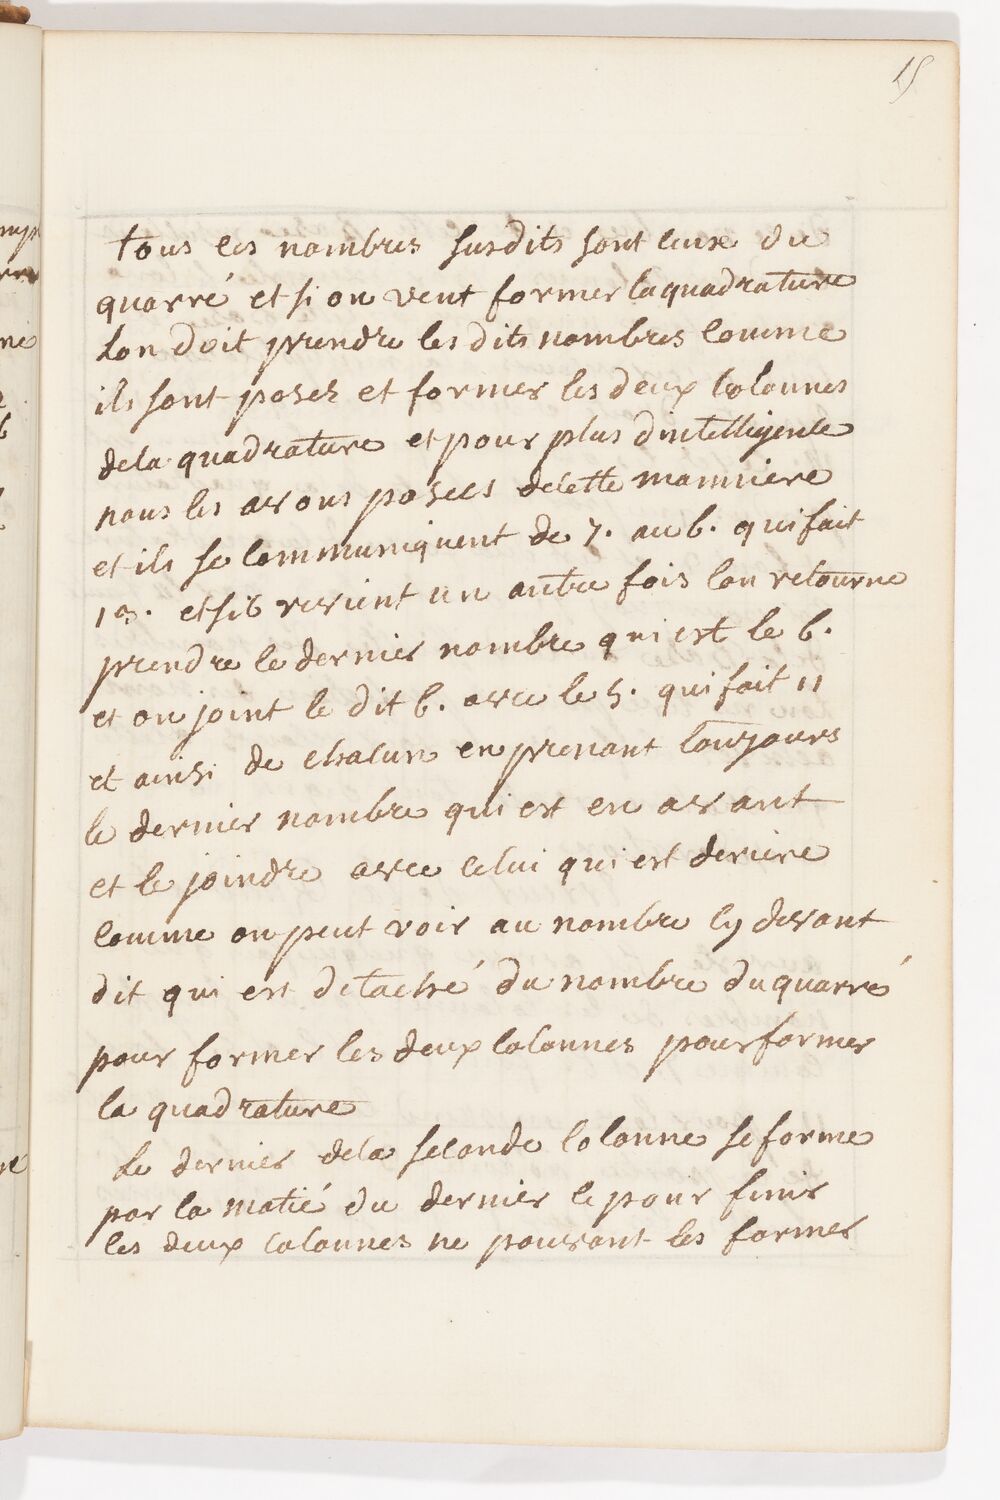 15
tous ces nombres susdits sont ceux du
quarré et si on veut former la quadrature
Lon doit prendre les dits nombres comme
ils sont posez et former les deux colonnes
dela quadrature et pour plus dintelligence
nous les avons posees decette manniere
et ils se communiquent de 7. au 6. qui fait
13. et si 6 revient un autre fois lon retourne
prendre le dernier nombre qui est le 6.
et on joint le dit 6. avec le 5. qui fait 11
et ainsi de chacun en prenant toujours
le dernier nombre qui est en avant
et le joindre avec celui qui est deriere
comme on peut voir au nombre cy devant
dit qui est detaché du nombre duquarré
pour former les deux colonnes pour former
la quadrature
Le dernier dela seconde colonne se forme
par la motié du dernier le pour finir
les deux colonnes ne pouvant les former